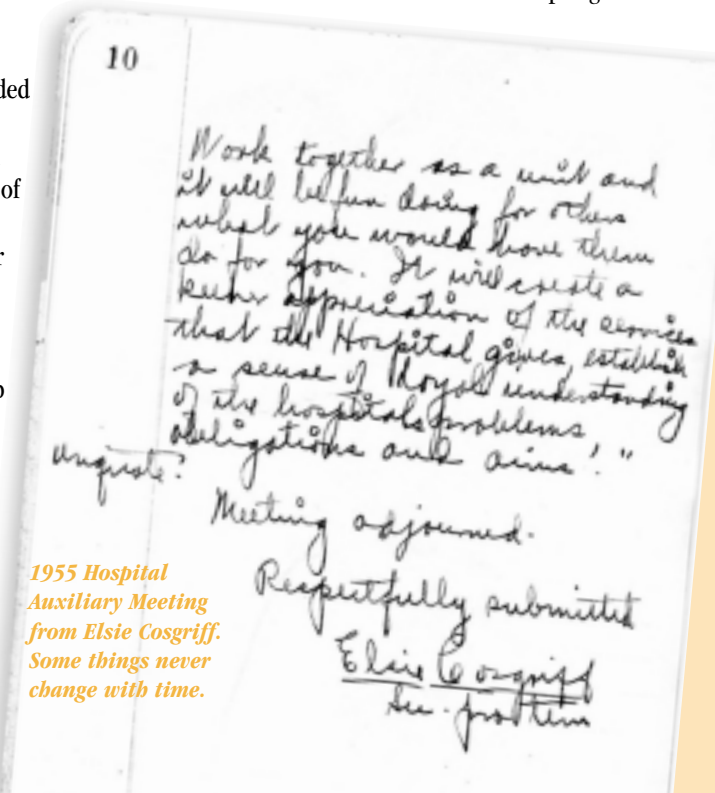 ded
of
r
10
Work together as a unit and
it will be fun doing for others
what you would have them
do for you. It will create a
keener appreciation of the services
that the Hospital gives, establish
a sense of loyal understanding
of the hospitals problems,
obligations and aims'."
unquote.
Meeting adjourned.
Respectfully submitted
Elsie Cosgriff
Sec. pro tem
1955 Hospital
Auxiliary Meeting
from Elsie Cosgriff.
Some things never
change with time.